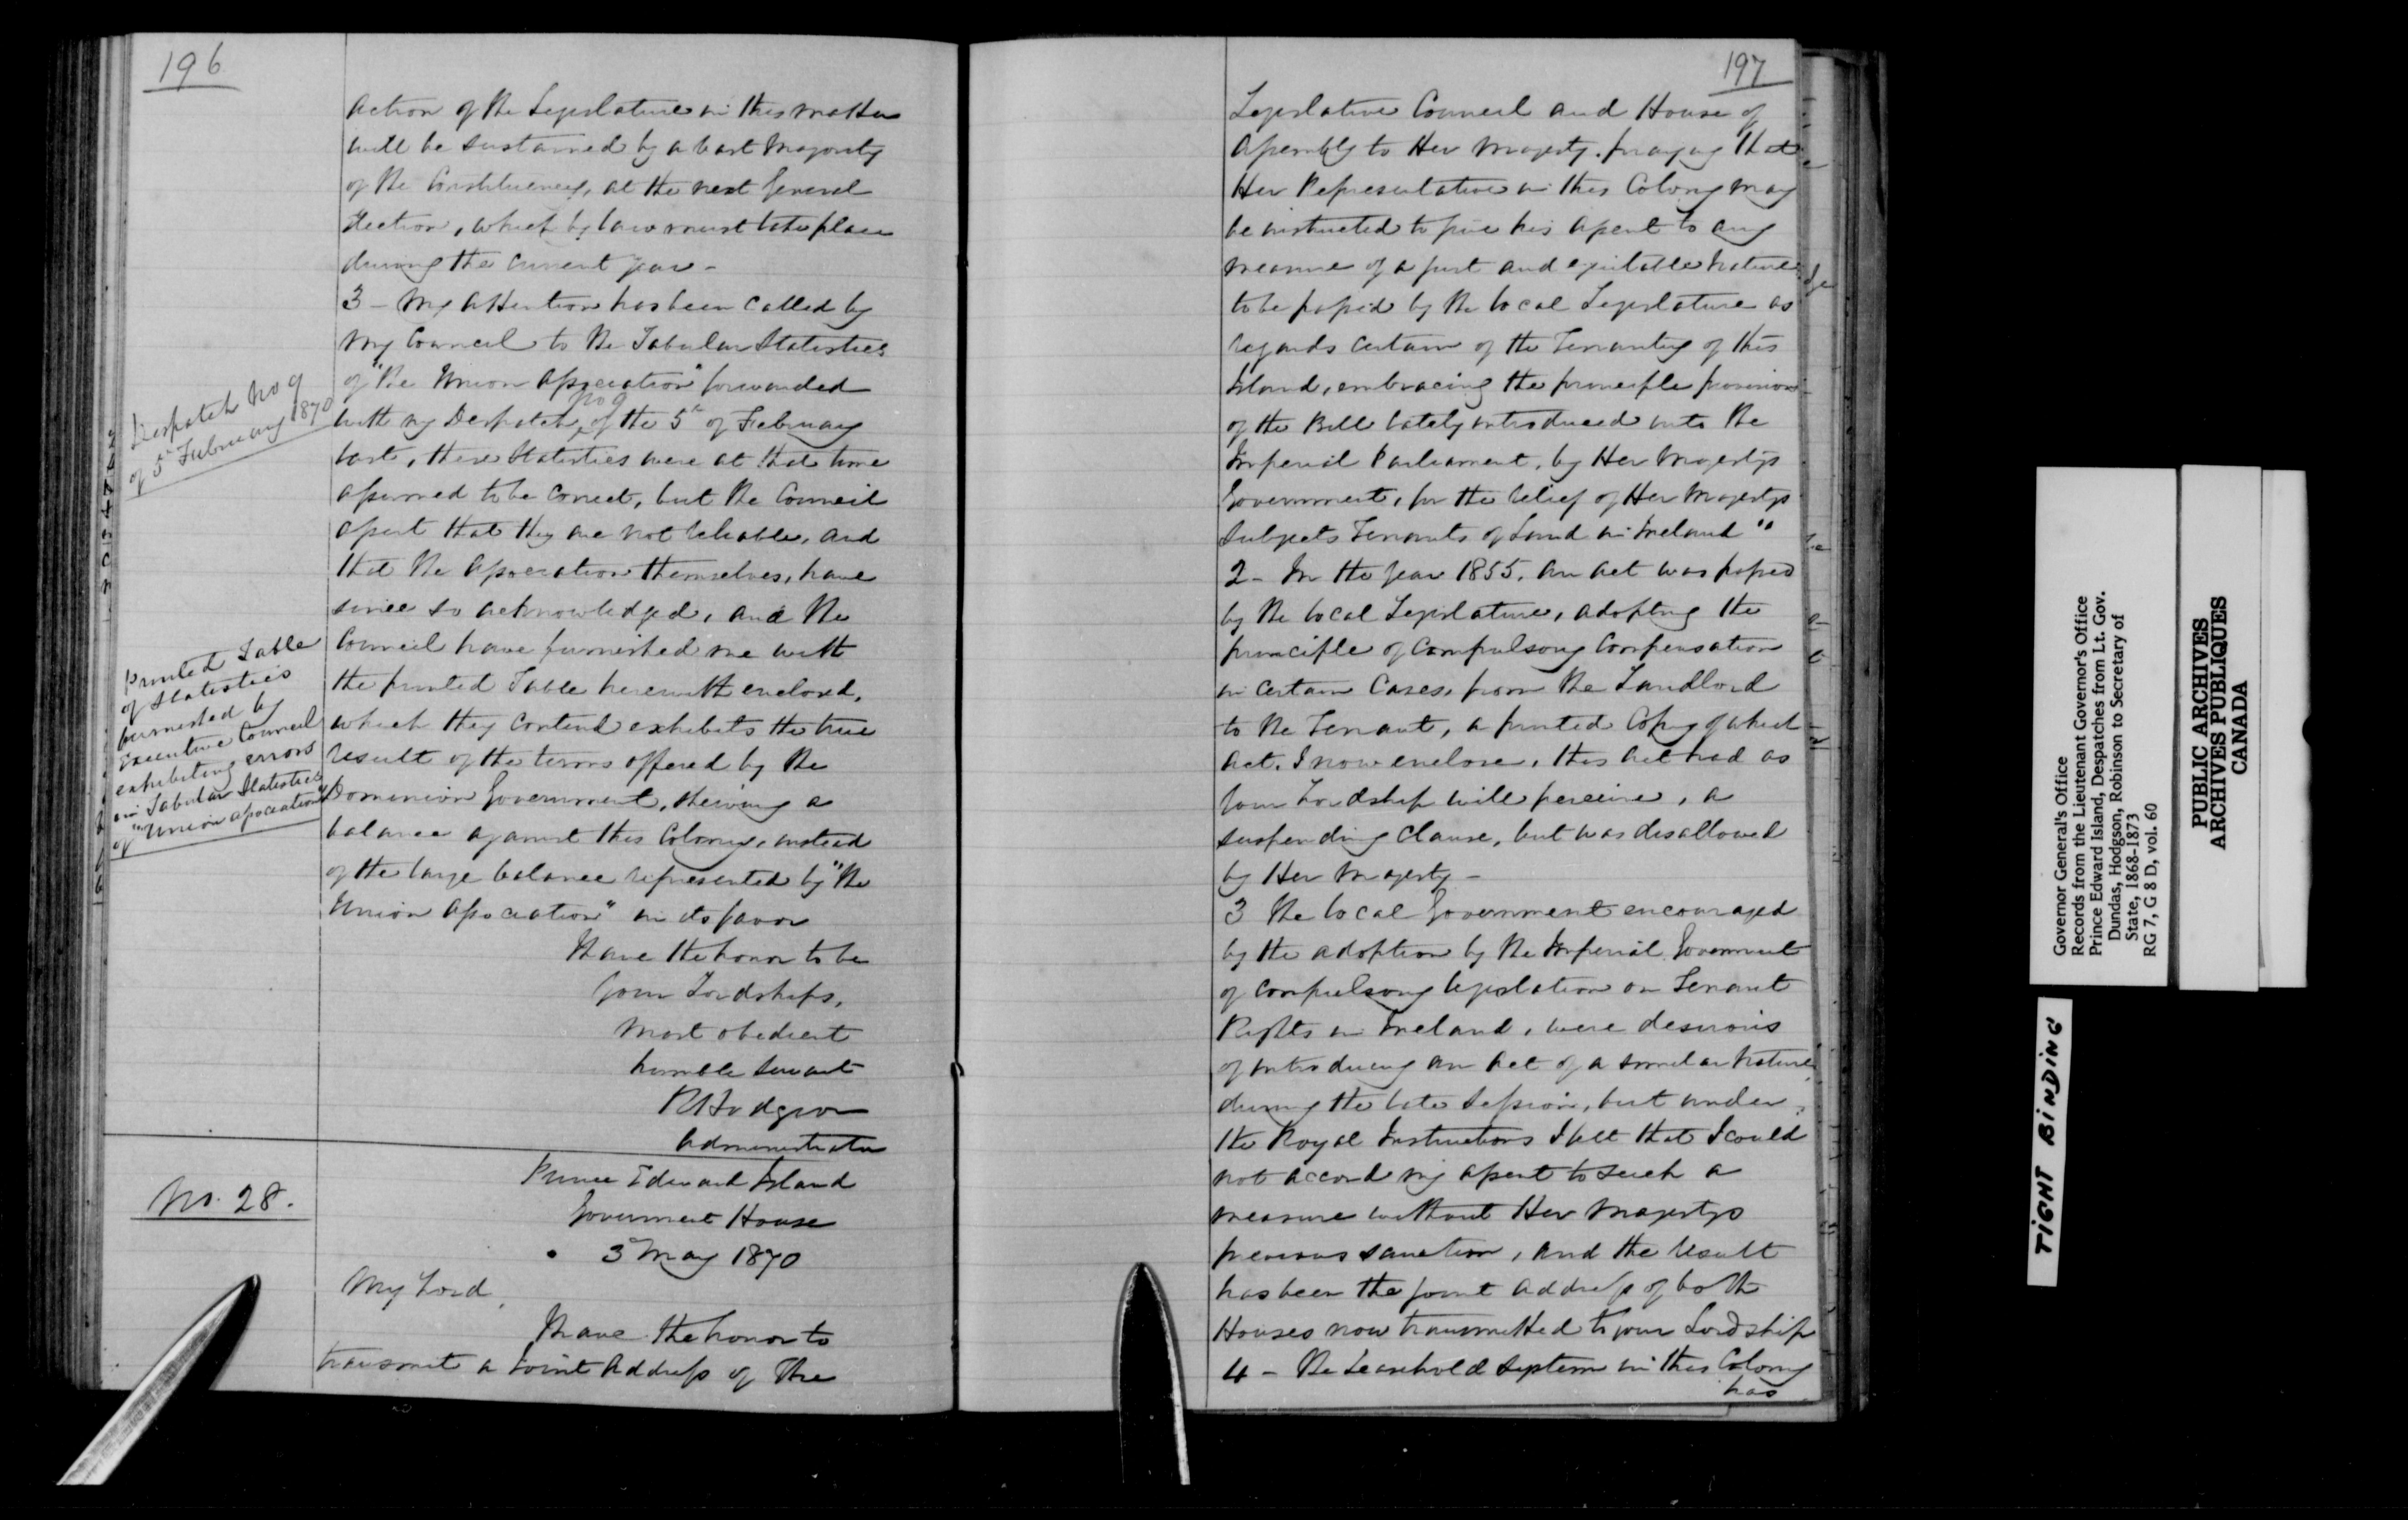 196
action of the Legislature in this matter
will be sustained by a vast Majority
of the Constituency, at the next General
Election, which by law must take place
during the current year -
3 - My attention has been called by
My Council to the Tabular Statistics
of "the Union Association" forwarded
Despatch No 9
of 5th February 1870
with my Despatch No 9 of the 5th of February
last, these Statistics were at that time
assumed to be correct, but the Council
assert that they are not reliable, and
that the Association themselves, have
since so acknowledged, and the
Council have furnished me with
the printed Table herewith enclosed,
which they contend exhibits the true
result of the terms offered by the
Dominion Government, shewing a
balance against this Colony, instead
of the large balance represented by "the
Union Association" in its favor
Printed Table
of Statistics
furnished by
Executive Council
exhibiting errors
in Tabular Statistics
of "Union Association"
I have the honor to be
Your Lordships,
Most obedient
humble Servant
R Hodgson
Administrator
No. 28.
Prince Edward Island
Government House
3d May 1870
My Lord,
I have the honor to
transmit a Joint Address of the
197
Legislative Council and House of
Assembly to Her Majesty. praying that
Her Representative in this Colony may
be instructed to give his assent to any
measure of a just and equitable nature
to be passed by the local Legislature as
regards certain of the Tenantry of this
Island, embracing the principle provisions
of the Bill lately introduced into the
Imperial Parliament, by Her Majesty's
Government, for the relief of Her Majestys
subjects Tenants of Land in Ireland "
2 - In the year 1855. an act was passed
by the local Legislature, adopting the
principle of Compulsory Compensation
in certain Cases, from the Landlord
to the Tenant, a printed Copy of which
Act. I now enclose, this act had as
Your Lordship will perceive, a
suspending Clause, but was disallowed
by Her Majesty -
3 The local Government encouraged
by the adoption by the Imperial Government
of Compulsory legislation on Tenant
Rights in Ireland, were desirous
of introducing an act of a similar nature
during the late Session, but under
the Royal Instructions I felt that I could
not accord my assent to such a
measure without Her Majestys
previous sanction, and the result
has been the joint address of both
Houses now transmitted to your Lordship
4 - The Leasehold System in this Colony
has
Governor General's Office
Records from the Lieutenant Governor's Office
Prince Edward Island, Despatches from Lt. Gov.
Dundas, Hodgson, Robinson to Secretary of
State, 1868-1873
RG 7, G 8 D, vol. 60
PUBLIC ARCHIVES
ARCHIVES PUBLIQUES
CANADA
TIGHT BINDING